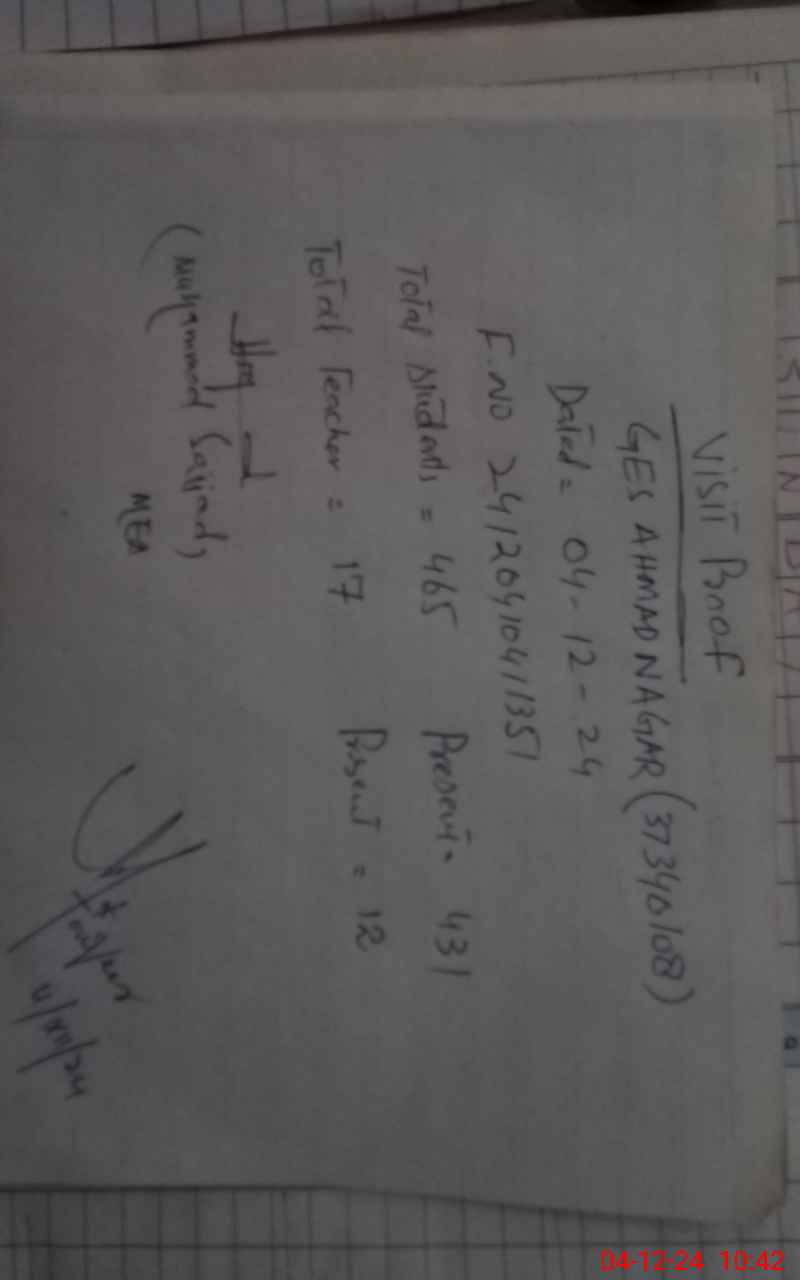 Visit Proof
GES AHMAD NAGAR (37340108)
Dated = 04-12-24
F.NO 24120410411351
Total Students = 465 Present = 431
Total Teacher = 17 Present = 12
(Muhammad Sajjad)
MEA
04-12-24 10:42